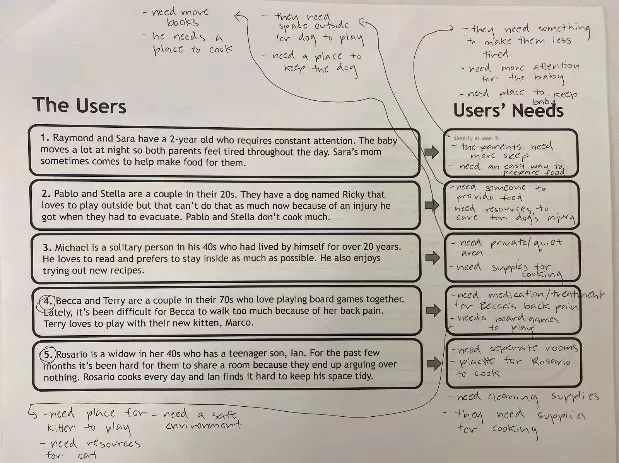 - need more
books
- he needs a
place to cook
- they need
space outside
for dog to play
- need a place to
keep the dog
- they need something
to make them less
tired
- need more attention
for the baby
- need place to keep
baby
The Users
Users' Needs
1. Raymond and Sara have a 2-year old who requires constant attention. The baby
moves a lot at night so both parents feel tired throughout the day. Sara's mom
sometimes comes to help make food for them.
Identify at least 5.
- the parents need
more sleep
- need an easy way to
prepare food
2. Pablo and Stella are a couple in their 20s. They have a dog named Ricky that
loves to play outside but that can't do that as much now because of an injury he
got when they had to evacuate. Pablo and Stella don't cook much.
- need someone to
provide food
- need resources to
care for dog's injury
3. Michael is a solitary person in his 40s who had lived by himself for over 20 years.
He loves to read and prefers to stay inside as much as possible. He also enjoys
trying out new recipes.
- need private/quiet
area
- need supplies for
cooking
4. Becca and Terry are a couple in their 70s who love playing board games together.
Lately, it's been difficult for Becca to walk too much because of her back pain.
Terry loves to play with their new kitten, Marco.
- need medication/treatment
for Becca's back pain
- needs board games
to play
5. Rosario is a widow in her 40s who has a teenager son, Ian. For the past few
months it's been hard for them to share a room because they end up arguing over
nothing. Rosario cooks every day and Ian finds it hard to keep his space tidy.
- need seperate rooms
- place for Rosario
to cook
- need cleaning supplies
- they need supplies
for cooking
- need place for
kitten to play
- need resources
for cat
- need a safe
environment